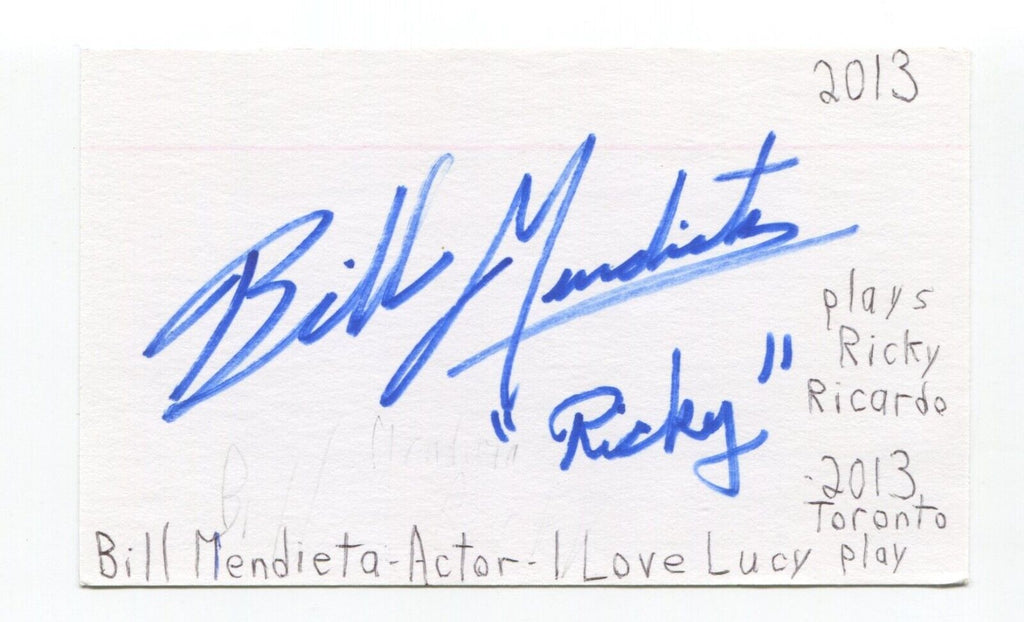 2013
Bill Mendieta
"Ricky"
plays
Ricky
Ricardo
2013
Toronto
play
Bill Mendieta
Bill Mendieta-Actor-I Love Lucy